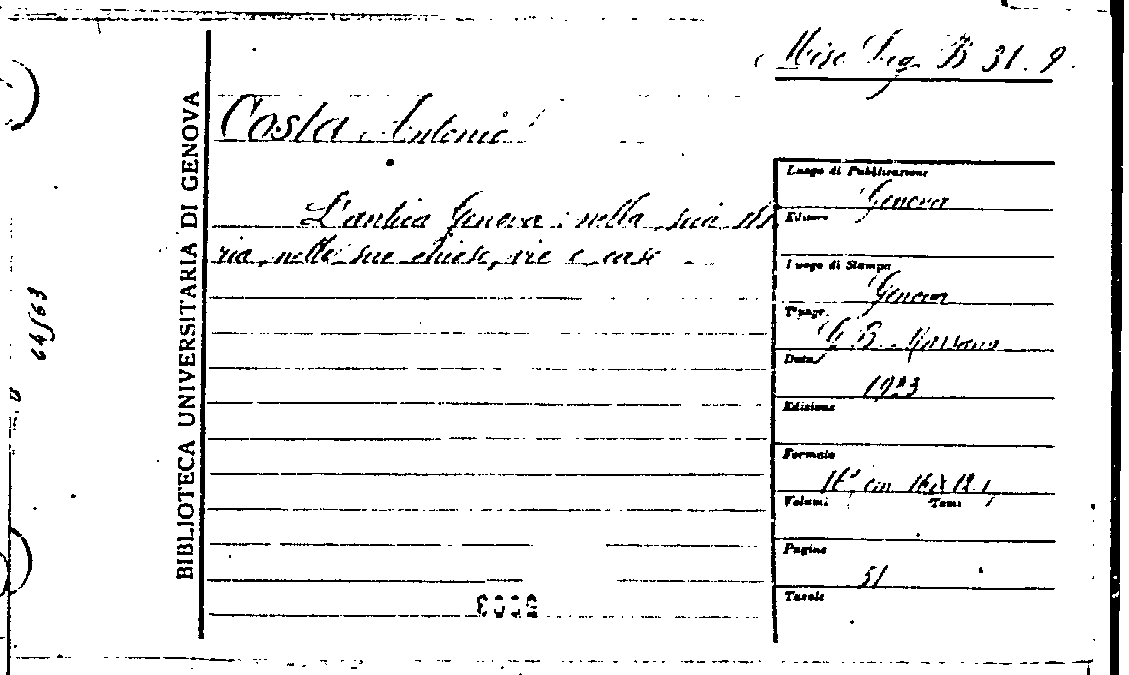 Misc Lig. B 31. 9.
Costa Antonio
L'antica Genova: nella sua sto
ria, nelle sue chiese, vie e case
BIBLIOTECA UNIVERSITARIA DI GENOVA
64563
Luogo di Pubblicazione
Genova
Editore
Luogo di Stampa
Genova
Tipogr.
G. B. Marsano
Data
1923
Edizione
Formato
16°, cm
Volumi Tomi
Pagine
51
Tavole